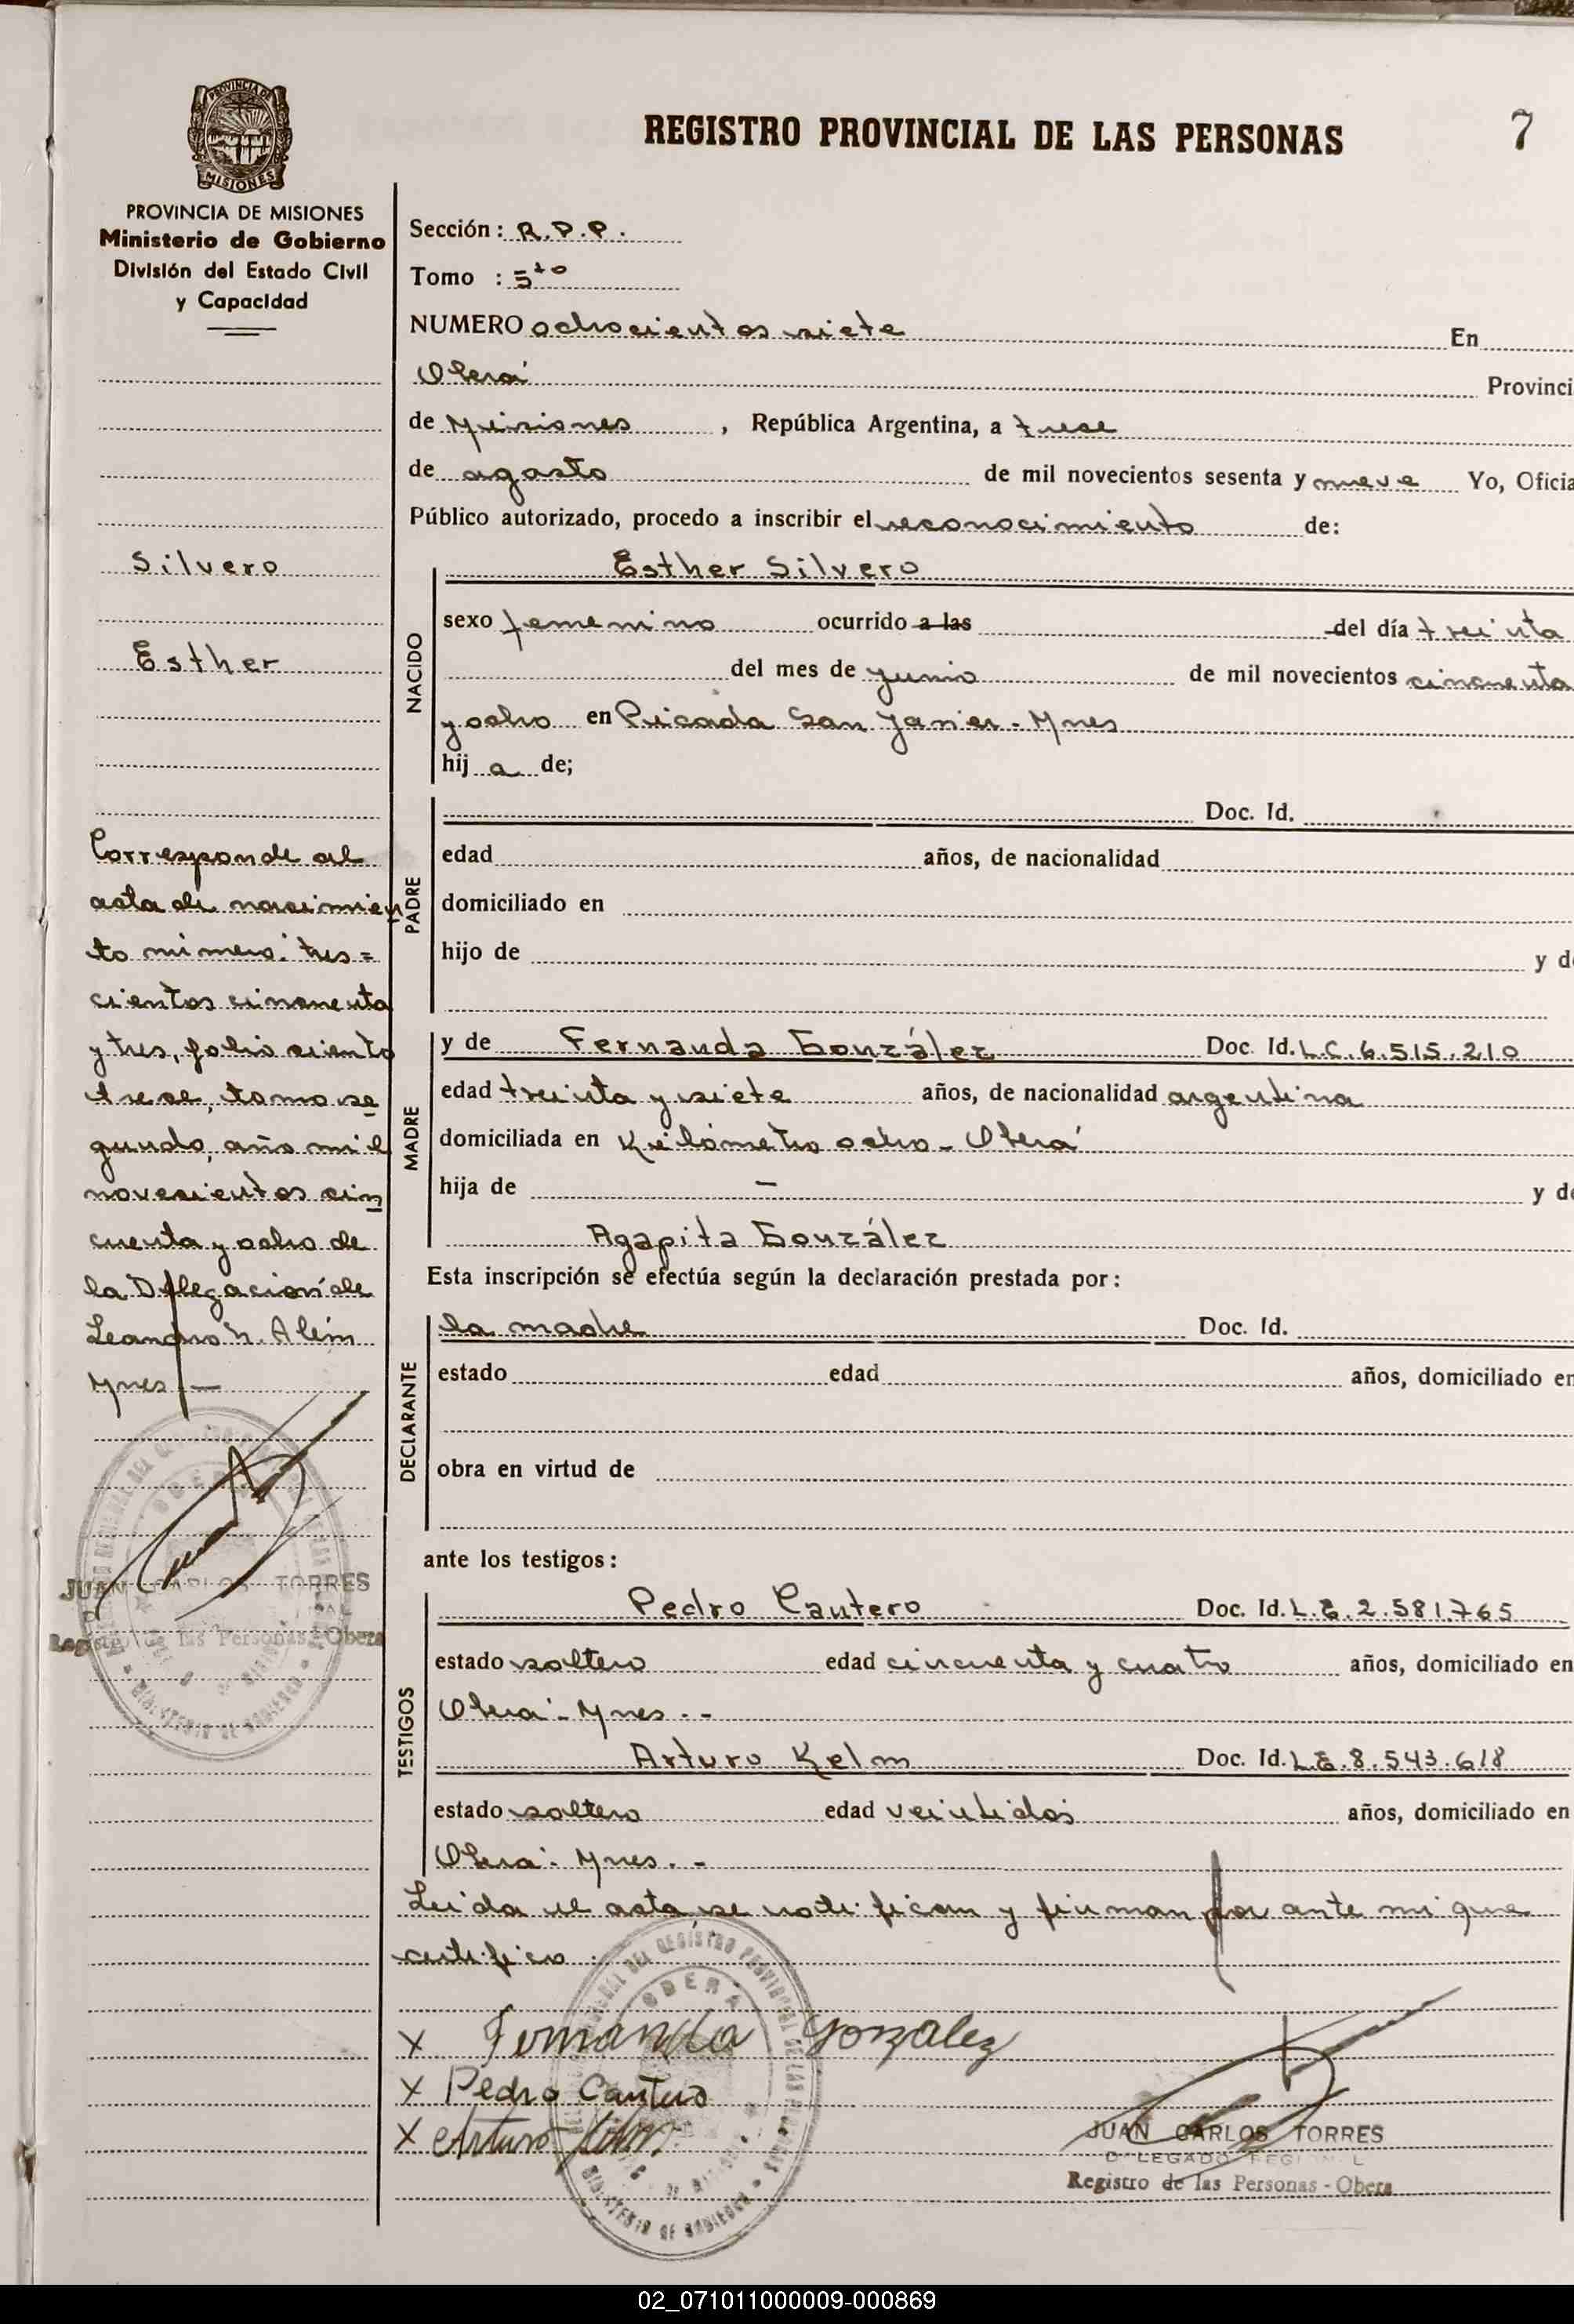 REGISTRO PROVINCIAL DE LAS PERSONAS
7
PROVINCIA DE
MISIONES
PROVINCIA DE MISIONES
Ministerio de Gobierno
División del Estado Civil
y Capacidad
Silvero
Esther
Corresponde al
acta de nacimien
to número: tres=
cientos cincuenta
y tres, folio ciento
trece, tomo se
gundo, año mil
novecientos cin
cuenta y ocho de
la Delegación de
Leandro N. Alem
Mnes -
JUAN CARLOS TORRES
Registro de las Personas - Obera
Sección: R.P.P.
Tomo : 5to
NUMERO ochocientos siete En
Oberá Provinci
de Misiones , República Argentina, a trece
de agosto de mil novecientos sesenta y nueve Yo, Oficia
Público autorizado, procedo a inscribir el reconocimiento de:
NACIDO
Esther Silvero
sexo femenino ocurrido a las del día treinta
del mes de junio de mil novecientos cincuenta
y ocho en Picada San Javier - Mnes
hij a de;
PADRE
Doc. Id.
edad años, de nacionalidad
domiciliado en
hijo de y de
MADRE
y de Fernanda González Doc. Id. L.C. 6.515.210
edad treinta y siete años, de nacionalidad argentina
domiciliada en Kilómetro ocho - Oberá
hija de — y de
Agapita González
Esta inscripción se efectúa según la declaración prestada por:
DECLARANTE
la madre Doc. Id.
estado edad años, domiciliado en
obra en virtud de
ante los testigos:
TESTIGOS
Pedro Cantero Doc. Id. L.E. 2.581765
estado soltero edad cincuenta y cuatro años, domiciliado en
Oberá - Mnes. -
Arturo Kelm Doc. Id. L.E. 8.543.618
estado soltero edad veintidos años, domiciliado en
Oberá - Mnes. -
Leida el acta se notifican y firman por ante mi que
certifico.
OBERA
X Fernanda Gonzalez
X Pedro Cantero
X Arturo Kelm
JUAN CARLOS TORRES
DELEGADO REGIONAL
Registro de las Personas - Obera
02_071011000009-000869